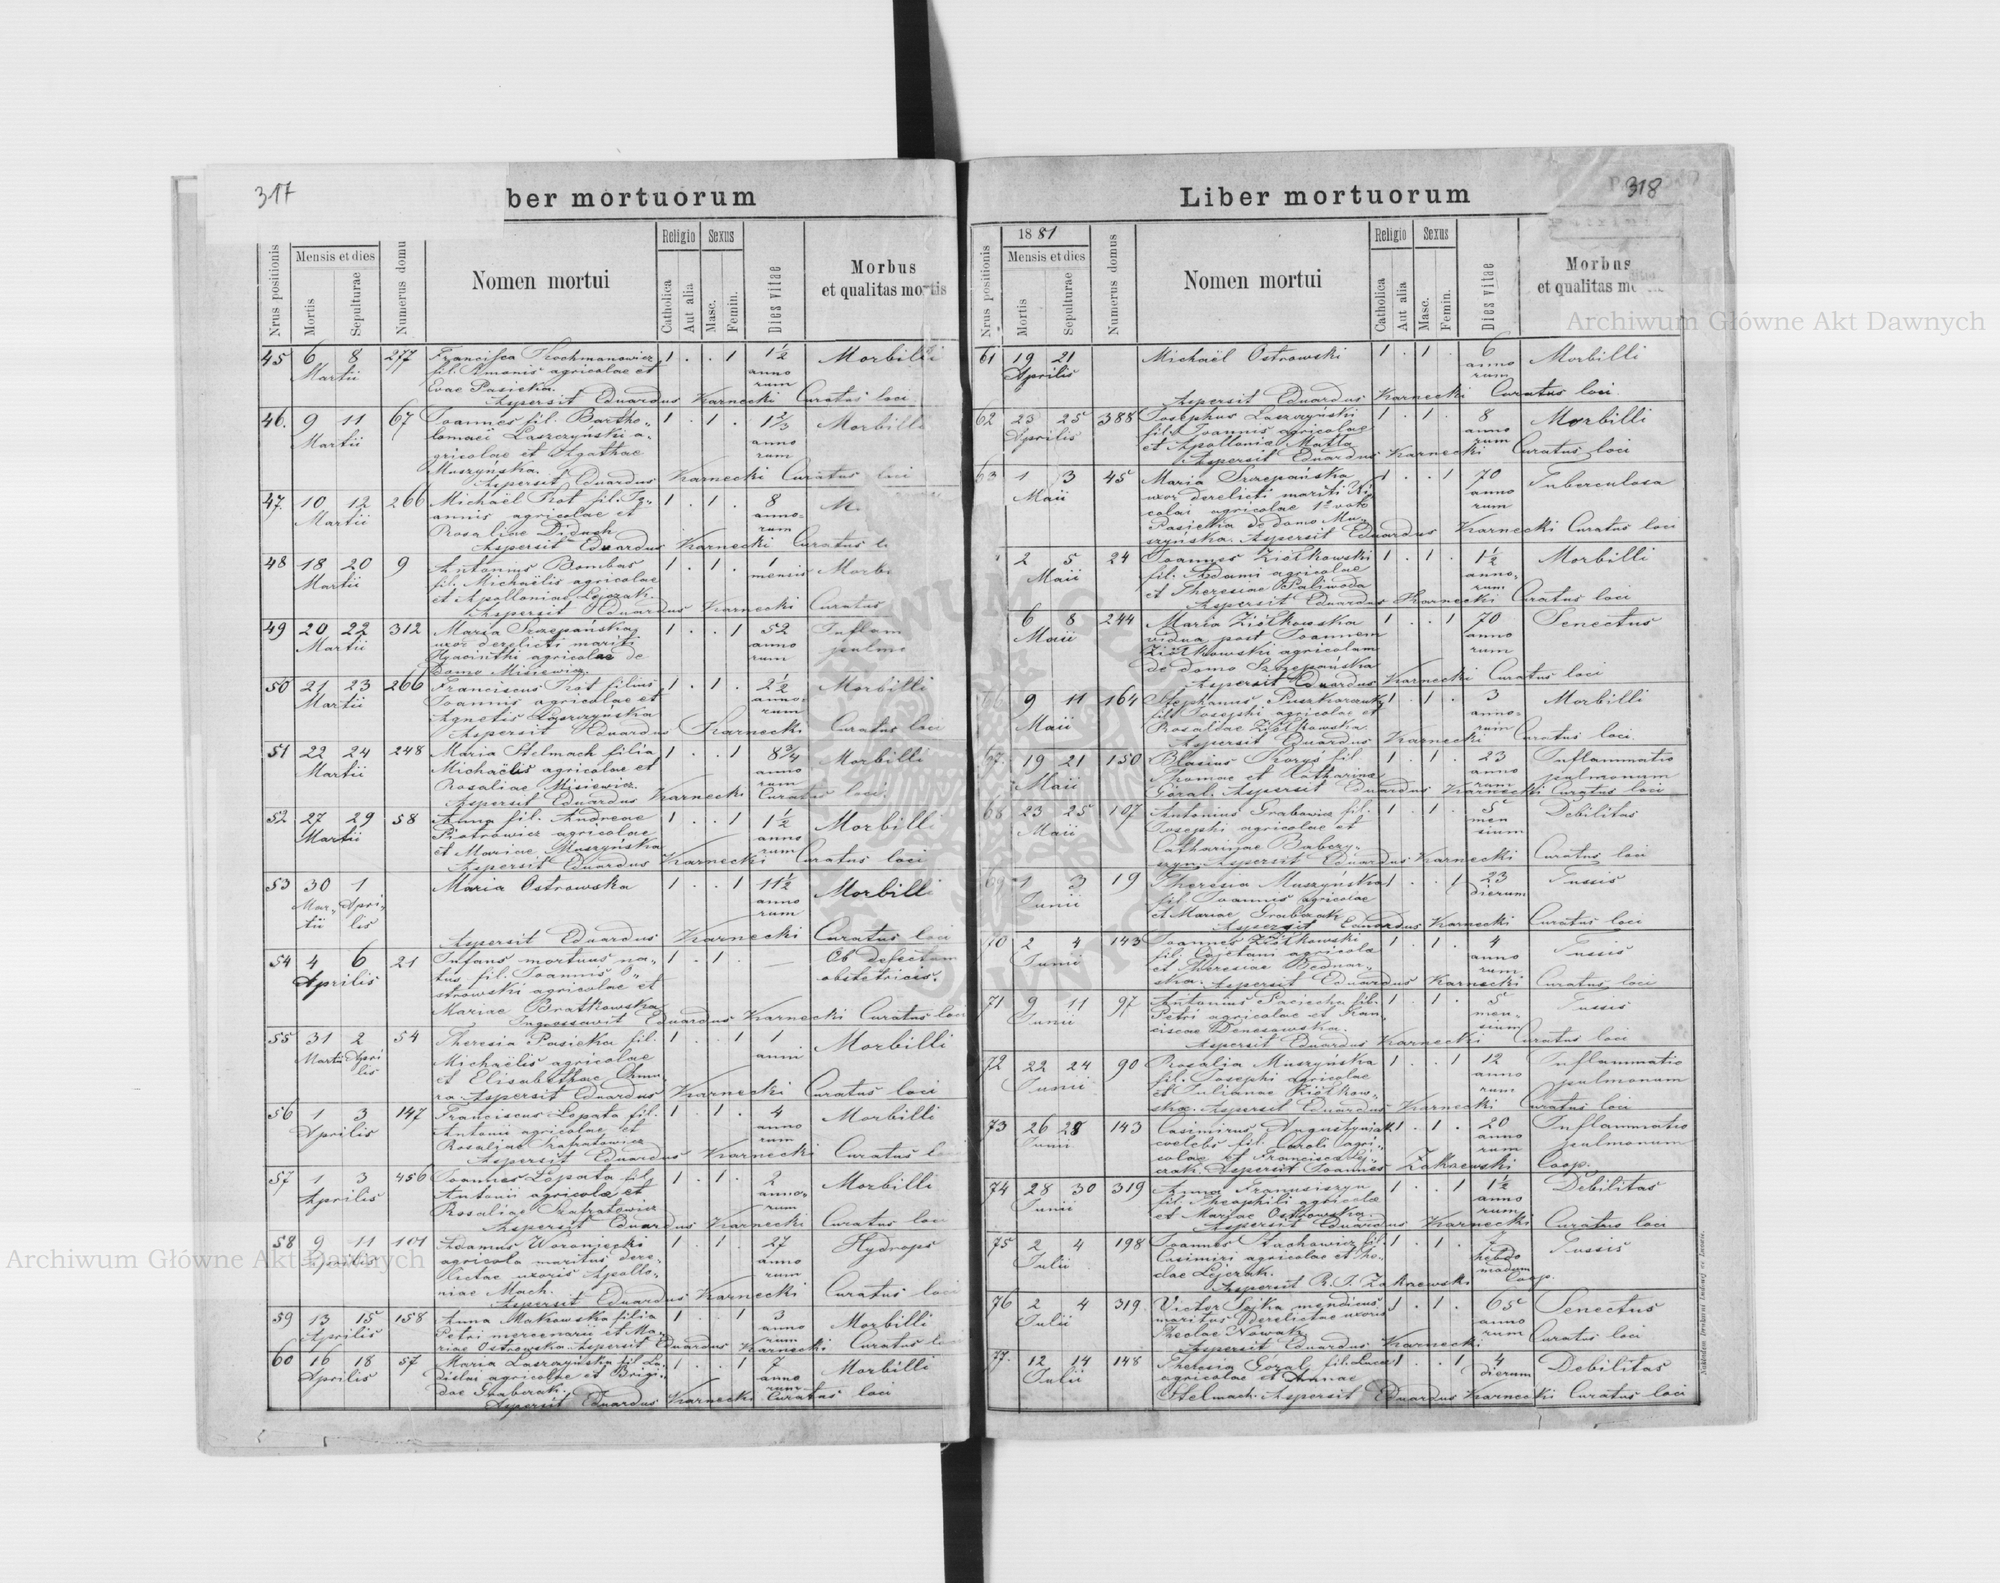 317
ber mortuorum
Nrus positionis
Mensis et dies
Mortis
Sepulturae
Numerus domus
Nomen mortui
Religio
Catholica
Aut alia
Sexus
Masc.
Femin.
Dies vitae
Morbus
et qualitas mortis
45 6 8 277 Francisca Kochmanowicz 1 . . 1 1½ Morbilli
Martii fil. Simonis agricolae et anno
Evae Pasieka. rum
Aspersit Eduardus Karnecki Curatus loci
46. 9 11 67 Joannes fil. Bartho- 1 . 1 . 1⅔ Morbilli
Martii lomaei Laszczyński a- anno
gricolae et Agathae rum
Muszyńska.
Aspersit Eduardus Karnecki Curatus loci
47. 10 12 266 Michaël Kot fil. Jo- 1 . 1 . 8 M
Martii annis agricolae et anno-
Rosaliae Diduch rum
Aspersit Eduardus Karnecki Curatus
48 18 20 9 Antonius Bombas 1 . 1 . 1 Morbi
Martii fil. Michaëlis agricolae mensis
et Apolloniae Lejczak.
Aspersit Eduardus Karnecki Curatus
49 20 22 312 Maria Szczepańska 1 . . 1 52 Inflam
Martii uxor derelicti mariti anno pulmo
Hyacinthi agricolae de rum
domo Misiewicz.
50 21 23 266 Franciscus Kot filius 1 . 1 . 2½ Morbilli
Martii Joannis agricolae et anno-
Agnetis Laszczyńska rum
Aspersit Eduardus Karnecki Curatus loci
51 22 24 248 Maria Stelmach filia 1 . . 1 8¾ Morbilli
Martii Michaëlis agricolae et anno
Rosaliae Misiewicz. rum
Aspersit Eduardus Karnecki Curatus loci.
52 27 29 58 Anna fil. Andreae 1 . . 1 1½ Morbilli
Martii Piotrowicz agricolae anno
et Mariae Muszyńska rum
Aspersit Eduardus Karnecki Curatus loci
53 30 1 Maria Ostrowska 1 . . 1 11½ Morbilli
Mar- Apri- anno
tii lis rum
Aspersit Eduardus Karnecki Curatus loci
54 4 6 21 Infans mortuus na- 1 . 1 . — Ob defectum
Aprilis tus, fil. Joannis O- obstetricis.
strowski agricolae et
Mariae Bratkowska
Ingrossavit Eduardus Karnecki Curatus loci
55 31 2 54 Theresia Pasieka fil. 1 . . 1 1 Morbilli
Martii Apri Michaëlis agricolae anni
lis et Elisabethae Chmu-
ra. Aspersit Eduardus Karnecki Curatus loci
56 1 3 147 Franciscus Łopata fil. 1 . 1 . 4 Morbilli
Aprilis Antonii agricolae et anno
Rosaliae Szafratowicz rum
Aspersit Eduardus Karnecki Curatus loci
57 1 3 456 Joannes Łopata fil. 1 . 1 . 2 Morbilli
Aprilis Antonii agricolae et anno-
Rosaliae Szafratowicz rum
Aspersit Eduardus Karnecki Curatus loci
58 9 11 101 Adamus Woroniecki 1 . 1 . 27 Hydrops
Aprilis agricola maritus dere- anno
lictae uxoris Apollo- rum
niae Mach.
Aspersit Eduardus Karnecki Curatus loci
59 13 15 158 Anna Makowska filia 1 . . 1 3 Morbilli
Aprilis Petri mercenarii et Ma- anno
riae Ostrowska. Aspersit Eduardus rum Karnecki Curatus loci
60 16 18 57 Maria Laszczyńska fil. La- 1 . . 1 7 Morbilli
Aprilis dislai agricolae et Brigi- anno
dae Grabczak. rum
Aspersit Eduardus Karnecki Curatus loci
318
Liber mortuorum
Nrus positionis
1881
Mensis et dies
Mortis
Sepulturae
Numerus domus
Nomen mortui
Religio
Catholica
Aut alia
Sexus
Masc.
Femin.
Dies vitae
Morbus
et qualitas m
61 19 21 Michaël Ostrowski 1 . 1 . 6 Morbilli
Aprilis anno
rum
Aspersit Eduardus Karnecki Curatus loci.
62 23 25 388 Josephus Laszczyński 1 . 1 . 8 Morbilli
Aprilis fil. Joannis agricolae anno
et Apolloniae Matla rum
Aspersit Eduardus Karnecki Curatus loci
63 1 3 45 Maria Szczepańska 1 . . 1 70 Tuberculosa
Maii uxor derelicti mariti Ni- anno
colai agricolae 1º voto rum
Pasieka de domo Mu-
szyńska. Aspersit Eduardus Karnecki Curatus loci
2 5 24 Joannes Ziółkowski 1 . 1 . 1½ Morbilli
Maii fil. Adami agricolae anno-
et Theresiae Paliwoda rum
Aspersit Eduardus Karnecki Curatus loci
6 8 244 Maria Ziółkowska 1 . . 1 70 Senectus
Maii vidua post Joannem anno
Ziółkowski agricolam rum
de domo Szczepańska
Aspersit Eduardus Karnecki Curatus loci
66 9 11 164 Stephanus Puszkarczuk 1 . 1 . 3 Morbilli
Maii fil. Josephi agricolae et anno-
Rosaliae Ziółkowska. rum
Aspersit Eduardus Karnecki Curatus loci.
67. 19 21 150 Blasius Koryś fil. 1 . 1 . 23 Inflammatio
Maii Thomae et Catharinae anno pulmonum
Góral. Aspersit Eduardus rum Karnecki Curatus loci
68 23 25 107 Antonius Grabowicz fil. 1 . 1 . 5 Debilitas
Maii Josephi agricolae et men
Catharinae Babczy- sium
szyn. Aspersit Eduardus Karnecki Curatus loci
69 1 3 19 Theresia Muszyńska 1 . . 1 23 Tussis
Junii fil. Joannis agricolae dierum
et Mariae Grabczak
Aspersit Eduardus Karnecki Curatus loci
70 2 4 143 Joannes Ziółkowski 1 . 1 . 4 Tussis
Junii fil. Cajetani agricolae anno
et Theresiae Bednar- rum
ska. Aspersit Eduardus Karnecki Curatus loci
71 9 11 97 Antonius Paciecha fil. 1 . 1 . 5 Tussis
Junii Petri agricolae et Fran- men-
ciscae Denesowska. sium
Aspersit Eduardus Karnecki Curatus loci
72 22 24 90 Rosalia Muszyńska 1 . . 1 12 Inflammatio
Junii fil. Josephi agricolae anno pulmonum
et Julianae Ziółkow- rum
ska. Aspersit Eduardus Karnecki Curatus loci
73 26 28 143 Casimirus Augustyniak 1 . 1 . 20 Inflammatio
Junii coelebs fil. Caroli agri- anno pulmonum
colae et Francisca Lej- rum
czak. Aspersit Joannes Zakrzewski Coop.
74 28 30 319 Anna Frannsiszyn 1 . . 1 1½ Debilitas
Junii fil. Theophili agricolae anno
et Mariae Ostrowska. rum
Aspersit Eduardus Karnecki Curatus loci
75 2 4 198 Joannes Stachowicz fil. 1 . 1 . 7 Tussis
Julii Casimiri agricolae et The- hebdo
clae Lejczak. madum
Aspersit R. J. Zakrzewski Coop.
76 2 4 319. Victor Sojka mendicus 1 . 1 . 65 Senectus
Julii maritus derelictae uxoris anno
Theclae Nowak. rum
Aspersit Eduardus Karnecki Curatus loci
77. 12 14 148 Theresia Goral fil. Lucae 1 . . 1 4 Debilitas
Julii agricolae et Annae dierum
Stelmach. Aspersit Eduardus Karnecki Curatus loci
Archiwum Główne Akt Dawnych
Archiwum Główne Akt Dawnych